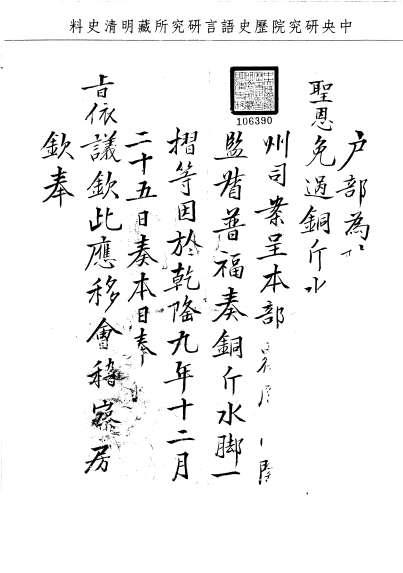 中央研究院歷史語言研究所藏明清史料
106390
戶部為
聖恩免過銅斤水
州司案呈本部
監督普福奏銅斤水脚一
摺等因於乾隆九年十二月
二十五日奏本日奉
旨依議欽此應移會稽察房
欽奉